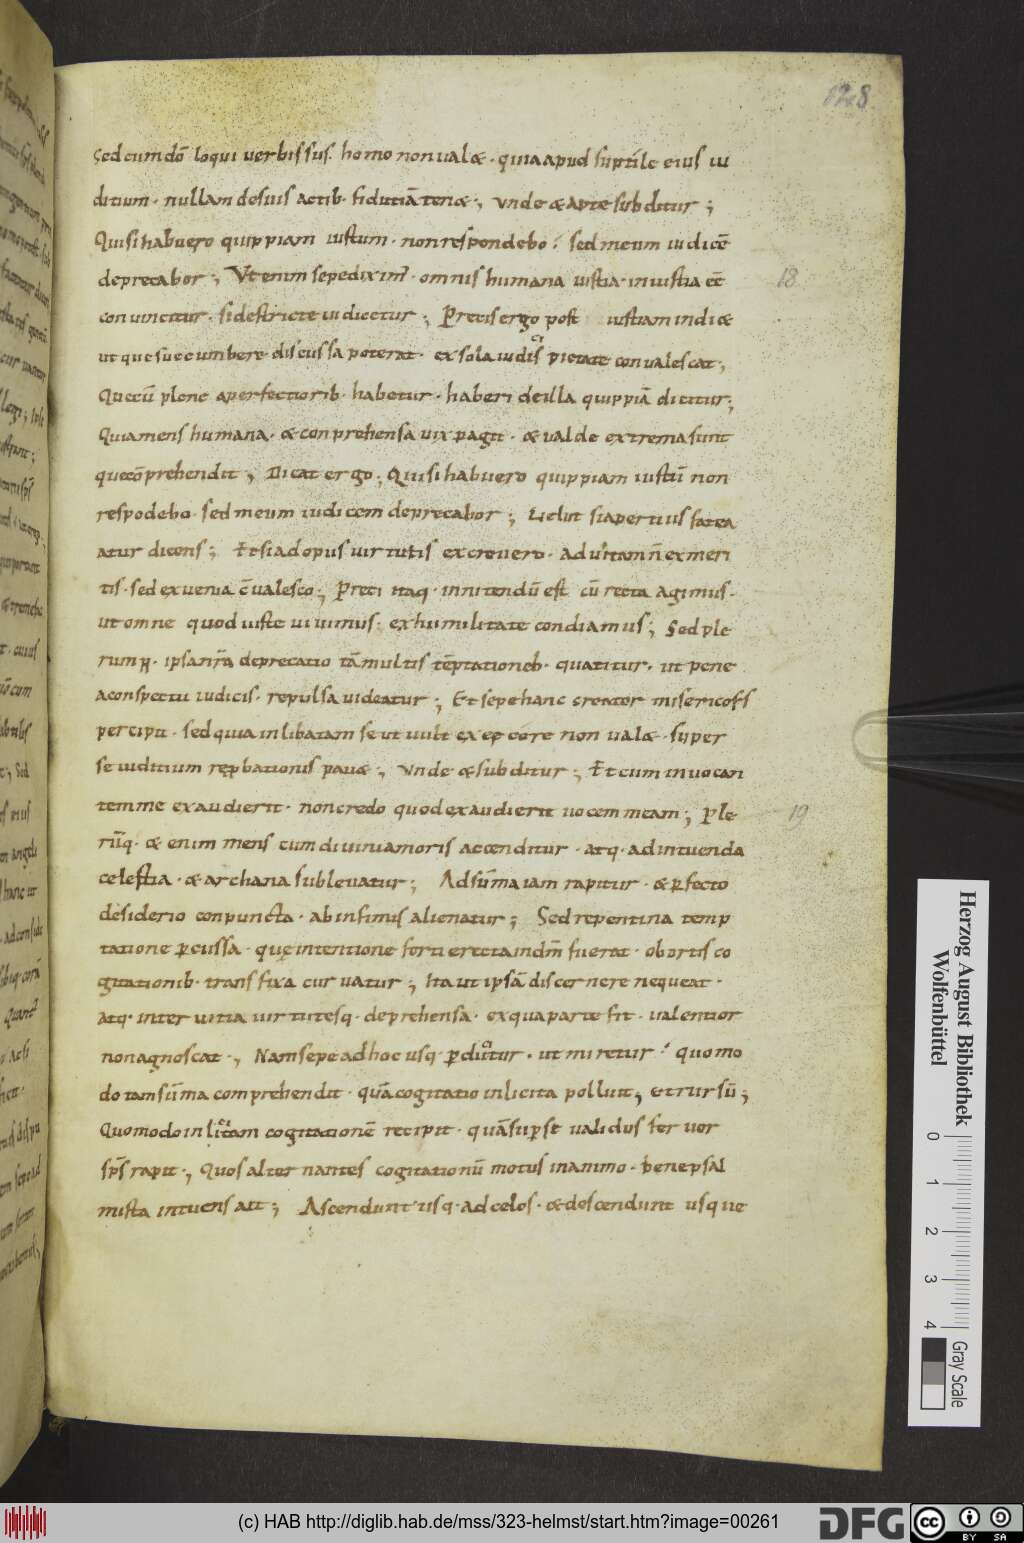 128
Sed cum dō loqui verbis suis homo non valæ · quia apud suptile eius iu
ditium · nullam de suis actib· fidutiā tenæ ·, Vnde & apte subditur ;
Qui si habuero quippiam iustum · non respondebo · sed meum iudicē
deprecabor ; Vt enim sepe diximꝰ · omnis humana iustia iniustia eē
18
convincitur · si destricte iudicetur ; Precis ergo post iustiam indiæ
ut que succumbere discussa poterat · ex sola iudis pietate convalescat ·,
Que cū plene a perfectiorib· habetur · haberi de illa quippiā dicitur ·,
Quia mens humana · & conprehensa vix pagit · & valde extrema sunt
que cōprehendit ; Dicat ergo ; Qui si habuero quippiam iustū non
respodebo · sed meum iudicem deprecabor ; Velut si apertius fatea
atur dicens ; Et si ad opus virtutis excrevero · ad vitam n̄ ex meri
tis · sed ex venia c̄valesco ·, Preci itaq· innitendū est cū recta agimus ·
ut omne quod iuste vivimus · ex humilitate condiamus ; Sed ple
rumq· ipsa nr̄a deprecatio tā multis tēptationeb· quatitur · ut pene
a conspectu iudicis · repulsa videatur ; Et sepe hanc creator misericors
percipit · sed quia inlibatam se ut vult exercore non valæ · super
se iuditium reprbationis pavæ ·, Vnde & subditur ; Et cum invocan
tem me exaudierit · non credo quod exaudierit vocem meam ; Ple
19
rūq· & enim mens cum divini amoris accenditur · atq· ad intuenda
celestia · & archana sublevatur ; Ad sūma iam rapitur · & perfecto
desiderio conpuncta · ab infimis alienatur ; Sed repentina temp
tatione percussa · quę intentione forti erecta in dm̄ fuerat · obortis co
gitationib· transfixa curvatur ; Ita ut ipsā discernere nequeat ·
atq· inter vitia virtutesq· deprehensa · ex qua parte fit · valentior
non agnoscat ·, Nam sepe ad hoc usq· perducitur · ut miretur · quomo
do tam sūma comprehendit · quā cogitatio inlicita polluit ; et rursū ;
Quomodo inlicitam cogitationē recipit · quā super se validus fervor
sp̄s rapit ·, Quos alternantes cogitationū motus in animo · bene psal
mista intuens ait ; Ascendunt usq· ad celos · & descendunt usque
Herzog August Bibliothek
Wolfenbüttel
0 1 2 3 4
Gray Scale
(c) HAB http://diglib.hab.de/mss/323-helmst/start.htm?image=00261
DFG
cc BY SA